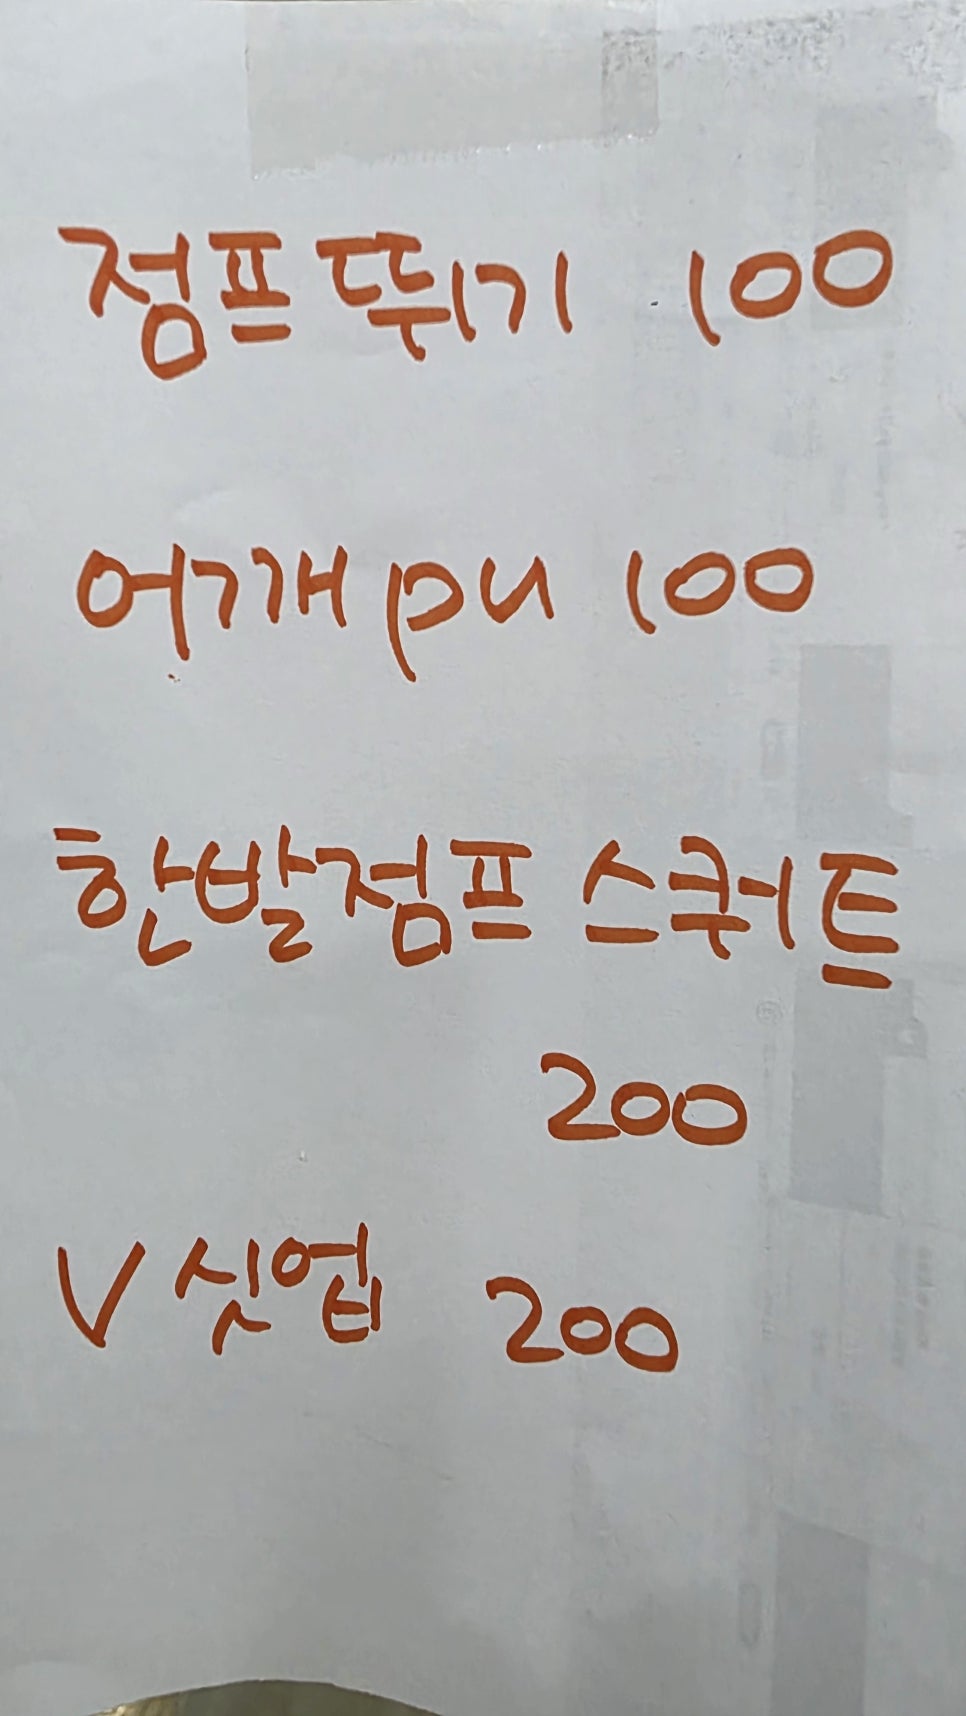 점프뛰기 100
어깨pu 100
한발점프 스쿼트
200
V 싯업 200